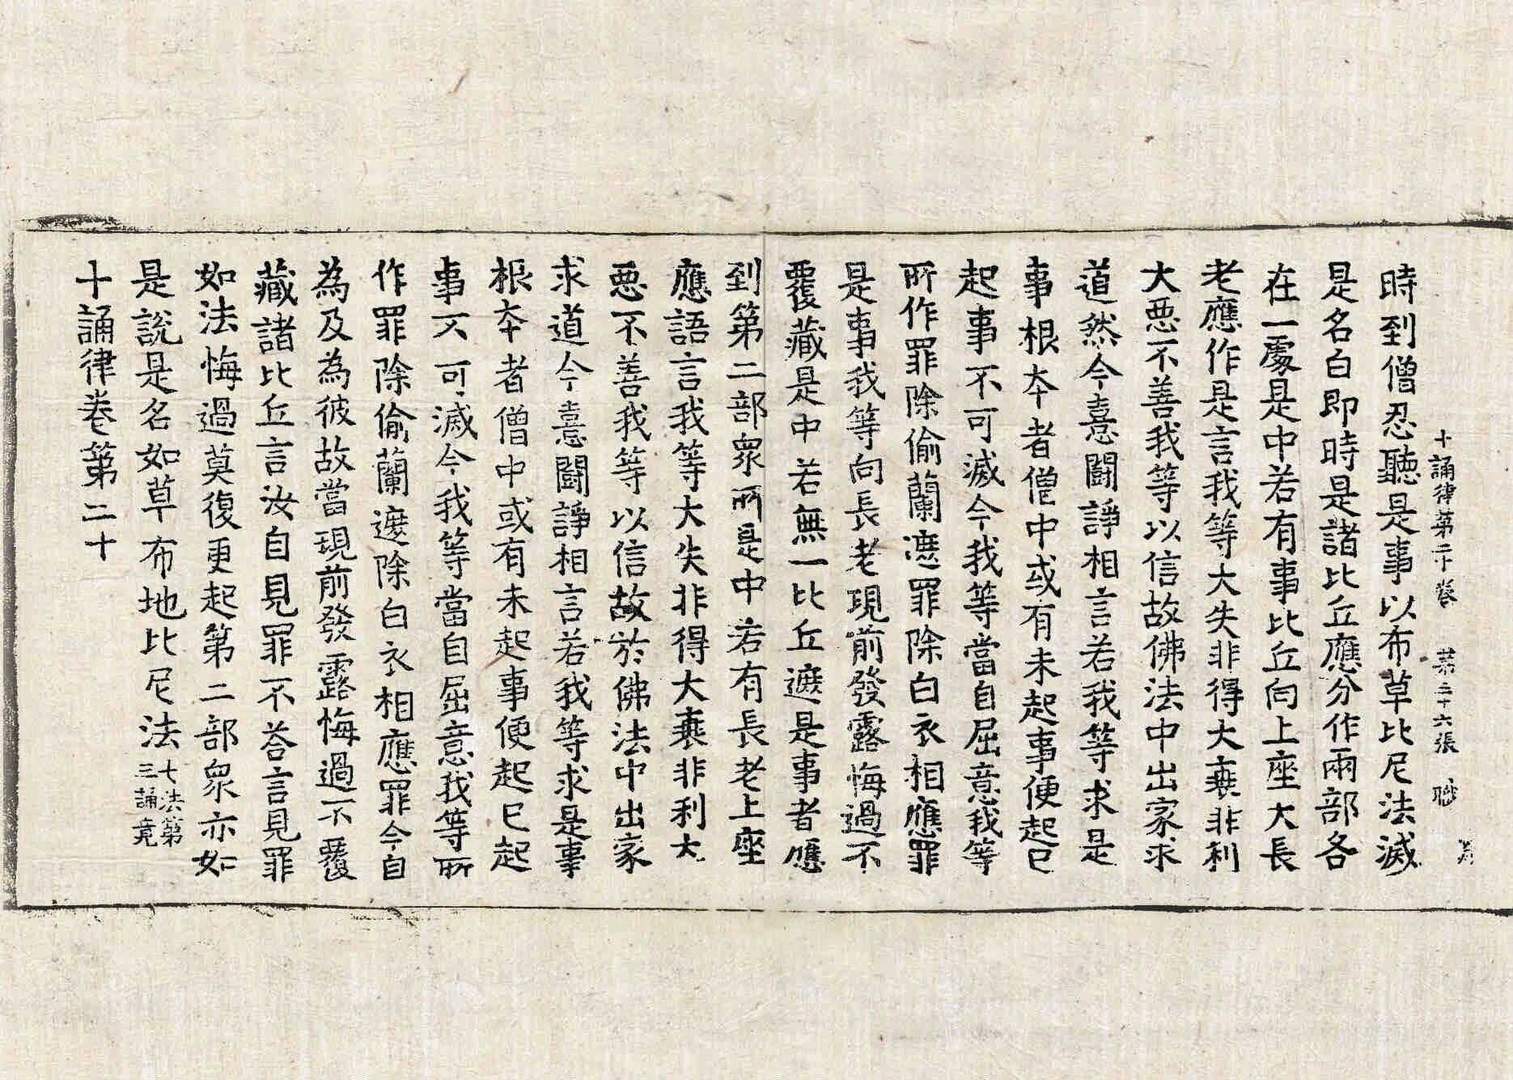 十誦律第二十卷　第三十六張　職
時到僧忍聽是事以布草比尼法滅
是名白即時是諸比丘應分作兩部各
在一處是中若有事比丘向上座大長
老應作是言我等大失非得大衰非利
大惡不善我等以信故佛法中出家求
道然今憙鬪諍相言若我等求是
事根本者僧中或有未起事便起已
起事不可滅今我等當自屈意我等
所作罪除偷蘭遮罪除白衣相應罪
是事我等向長老現前發露悔過不
覆藏是中若無一比丘遮是事者應
到第二部眾所是中若有長老上座
應語言我等大失非得大衰非利大
惡不善我等以信故於佛法中出家
求道今憙鬪諍相言若我等求是事
根本者僧中或有未起事便起已起
事不可滅今我等當自屈意我等所
作罪除偷蘭遮除白衣相應罪今自
為及為彼故當現前發露悔過不覆
藏諸比丘言汝自見罪不答言見罪
如法悔過莫復更起第二部眾亦如
是說是名如草布地比尼法七法第
三誦竟
十誦律卷第二十